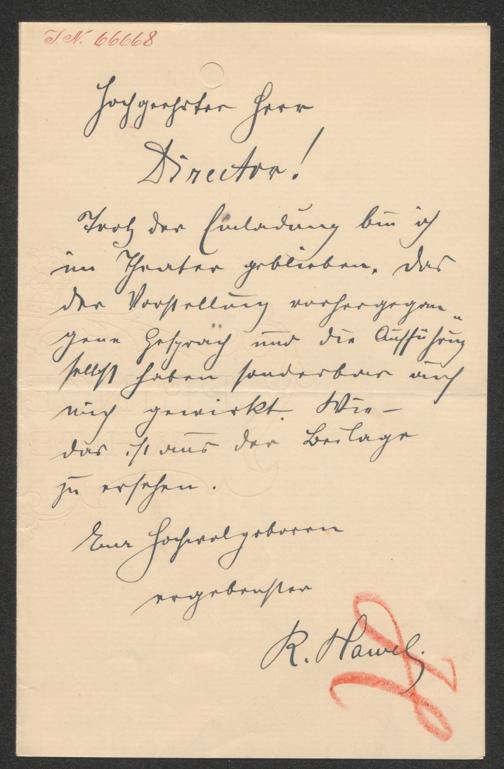 I.N. 66668
Hochgeehrter Herr
Director!
Trotz der Einladung bin ich
im Theater geblieben. Das
der Vorstellung vorhergegan-
gene Gespräch und die Aufführung
selbst haben sonderbar auf
mich gewirkt. Wie –
das ist aus der Beilage
zu ersehen.
Euer Hochwolgeboren
ergebenster
R. Hawel.